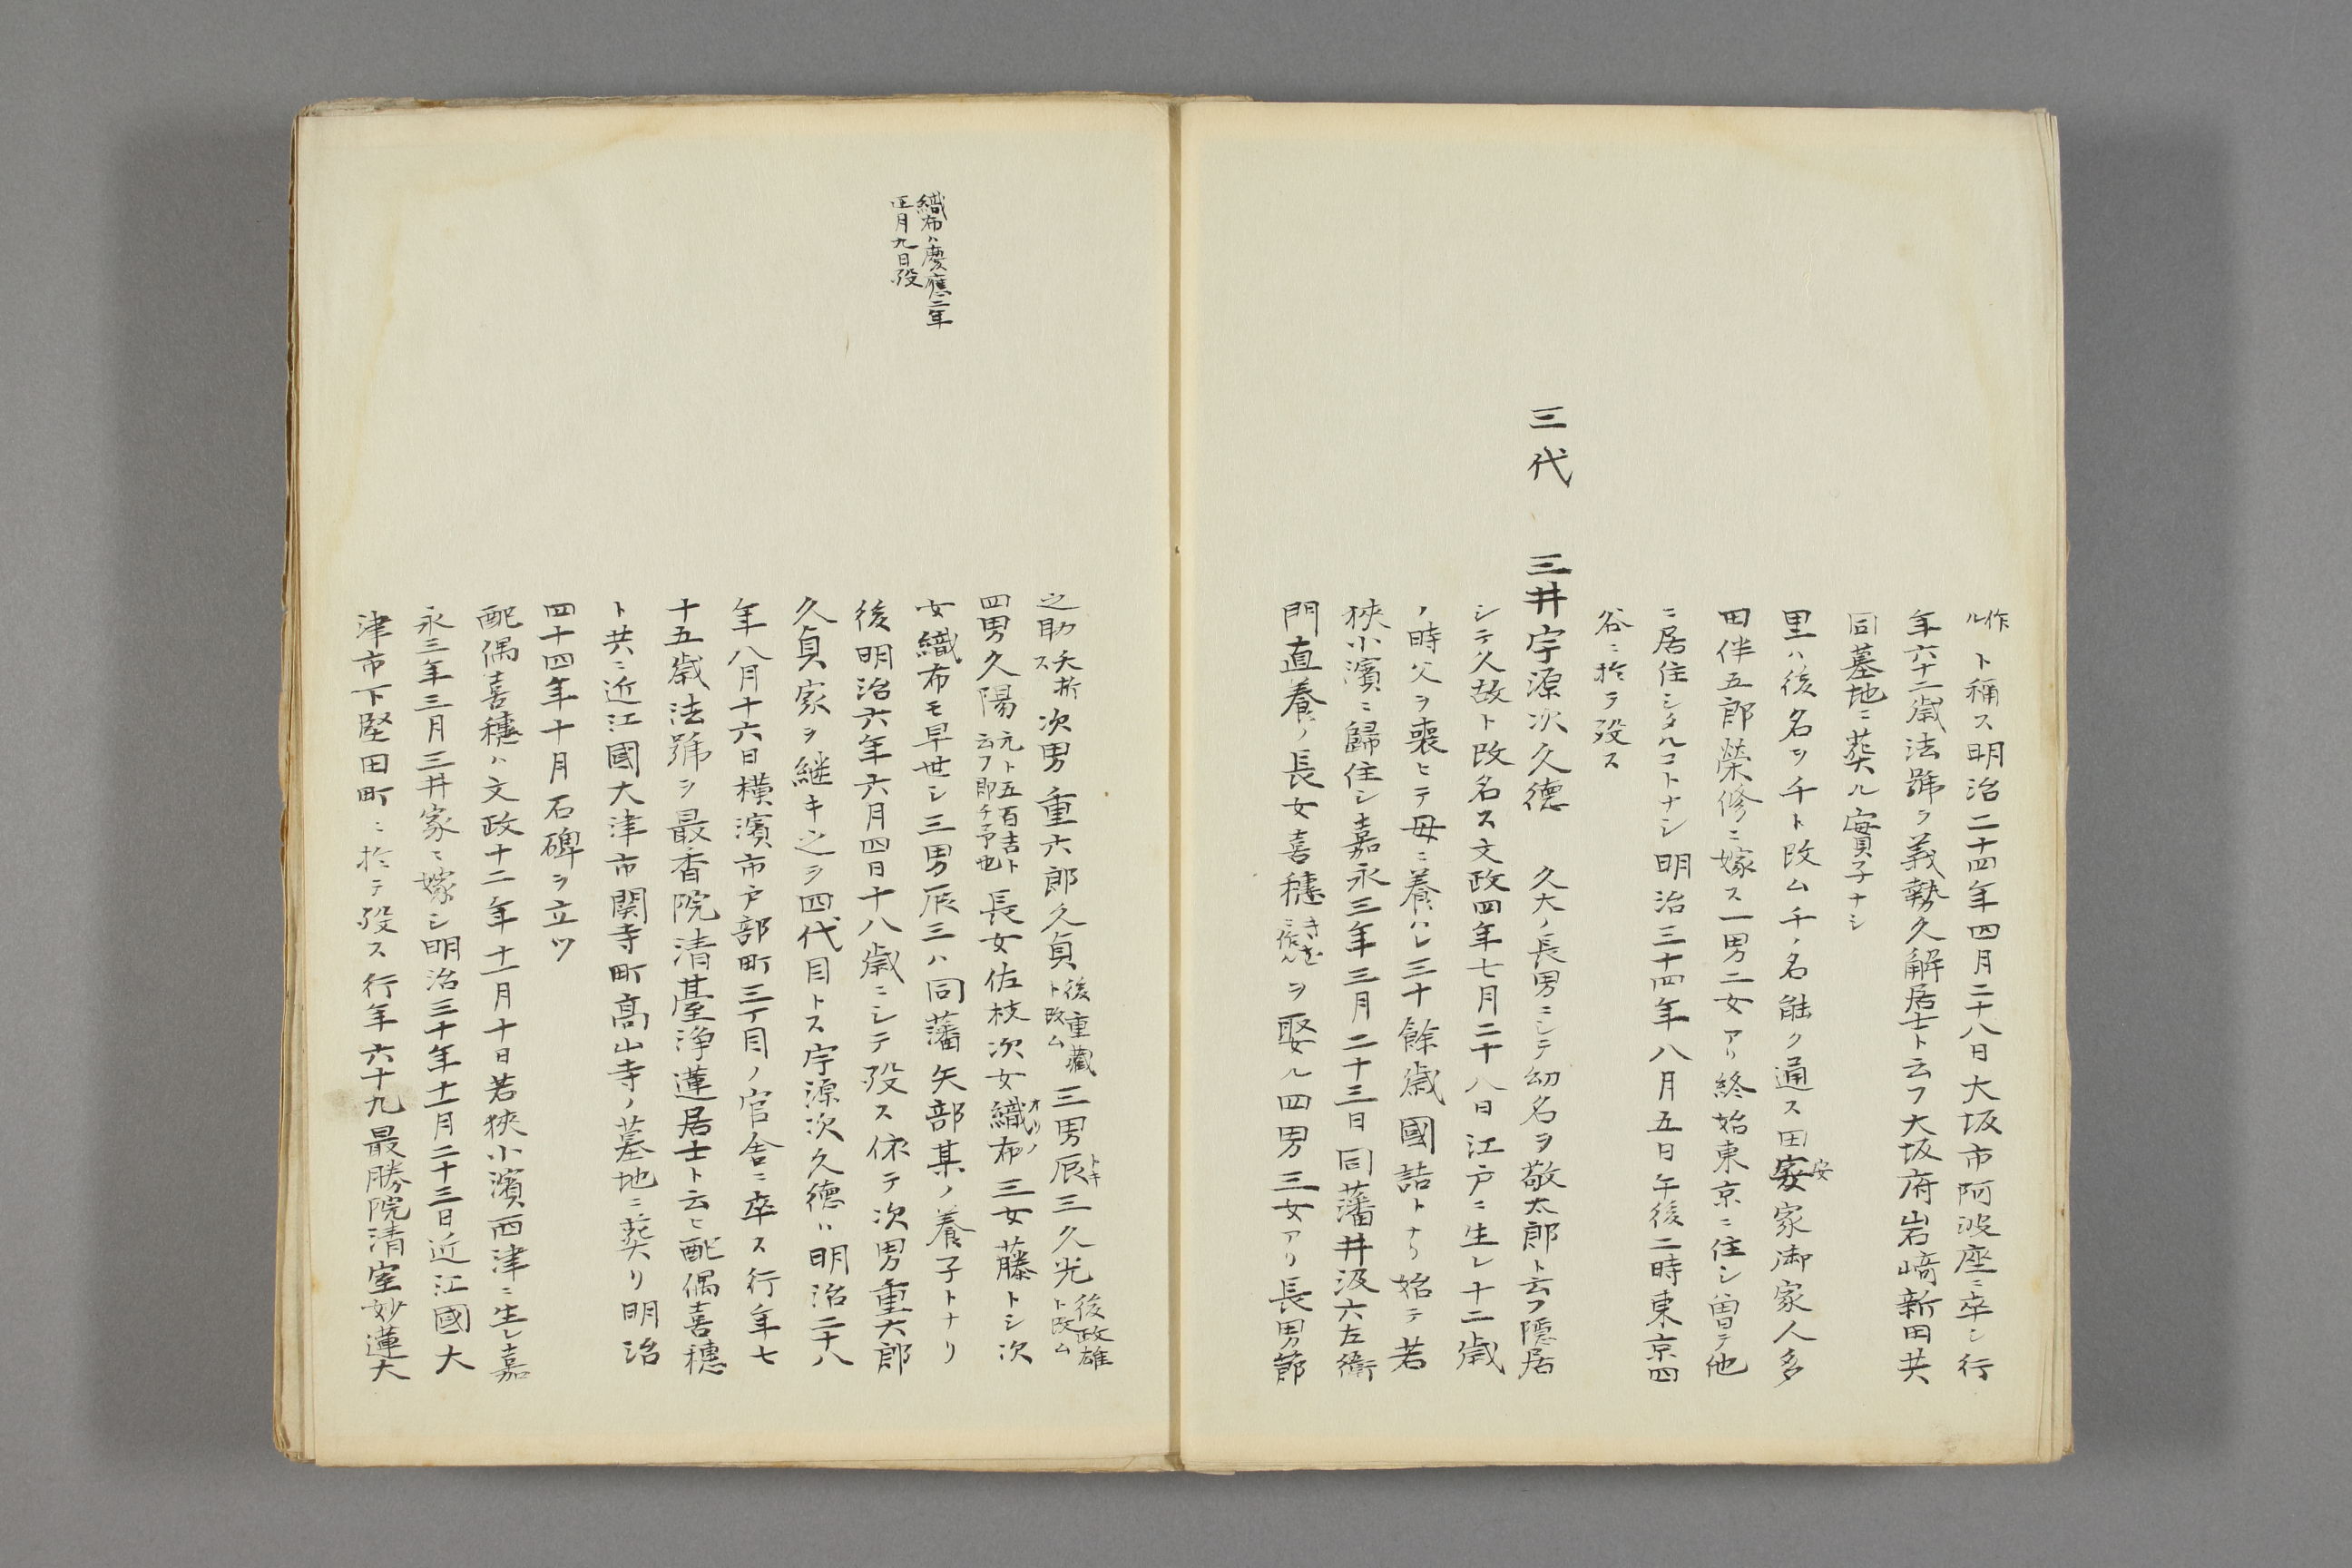 作ル ト稱ス明治二十四年四月二十八日大坂市阿波座ニ卒シ行
年六十二歳法號ヲ義勢久解居士ト云フ大坂府岩﨑新田共
同墓地ニ葬ル實子ナシ
里ハ後名ヲ千ト改ム千ノ名能ク通ス田安家御家人多
田伴五郎榮修ニ嫁ス一男二女アリ終始東京ニ住シ曽テ他
ニ居住シタルコトナシ明治三十四年八月五日午後二時東京四
谷ニ於テ歿ス
三代 三井宇源次久德 久大ノ長男ニシテ幼名ヲ敬太郎ト云フ隱居
シテ久故ト改名ス文政四年七月二十八日江戸ニ生レ十二歳
ノ時父ヲ喪ヒテ母ニ養ハレ三十餘歳國詰トナリ始テ若
狹小濱ニ歸住シ嘉永三年三月二十三日同藩井汲六左衛
門直養ノ長女喜穗 ヲ娶ル四男三女アリ長男節
之助 夭折ス 次男重六郎久貞 後重藏ト改ム 三男辰三久光 後政雄ト改ム
トキ
四男久陽 元ト五百吉ト云フ即チ予也 長女佐枝次女織布 三女藤トシ次
オリノ
女織布モ早世シ三男辰三ハ同藩矢部某ノ養子トナリ
織布ハ慶應二年
正月九日歿
後明治六年六月四日十八歳ニシテ歿ス依テ次男重六郎
久貞家ヲ継キ之ヲ四代目トス宇源次久德ハ明治二十八
年八月十六日横濱市戸部町三丁目ノ官舎ニ卒ス行年七
十五歳法號ヲ最香院清臺浄蓮居士ト云ヒ配偶喜穗
ト共ニ近江國大津市関寺町髙山寺ノ墓地ニ葬リ明治
四十四年十月石碑ヲ立ツ
配偶喜穗ハ文政十二年十一月十日若狹小濱西津ニ生レ嘉
永三年三月三井家ニ嫁シ明治三十年十一月二十三日近江國大
津市下堅田町ニ於テ歿ス行年六十九最勝院清室妙蓮大